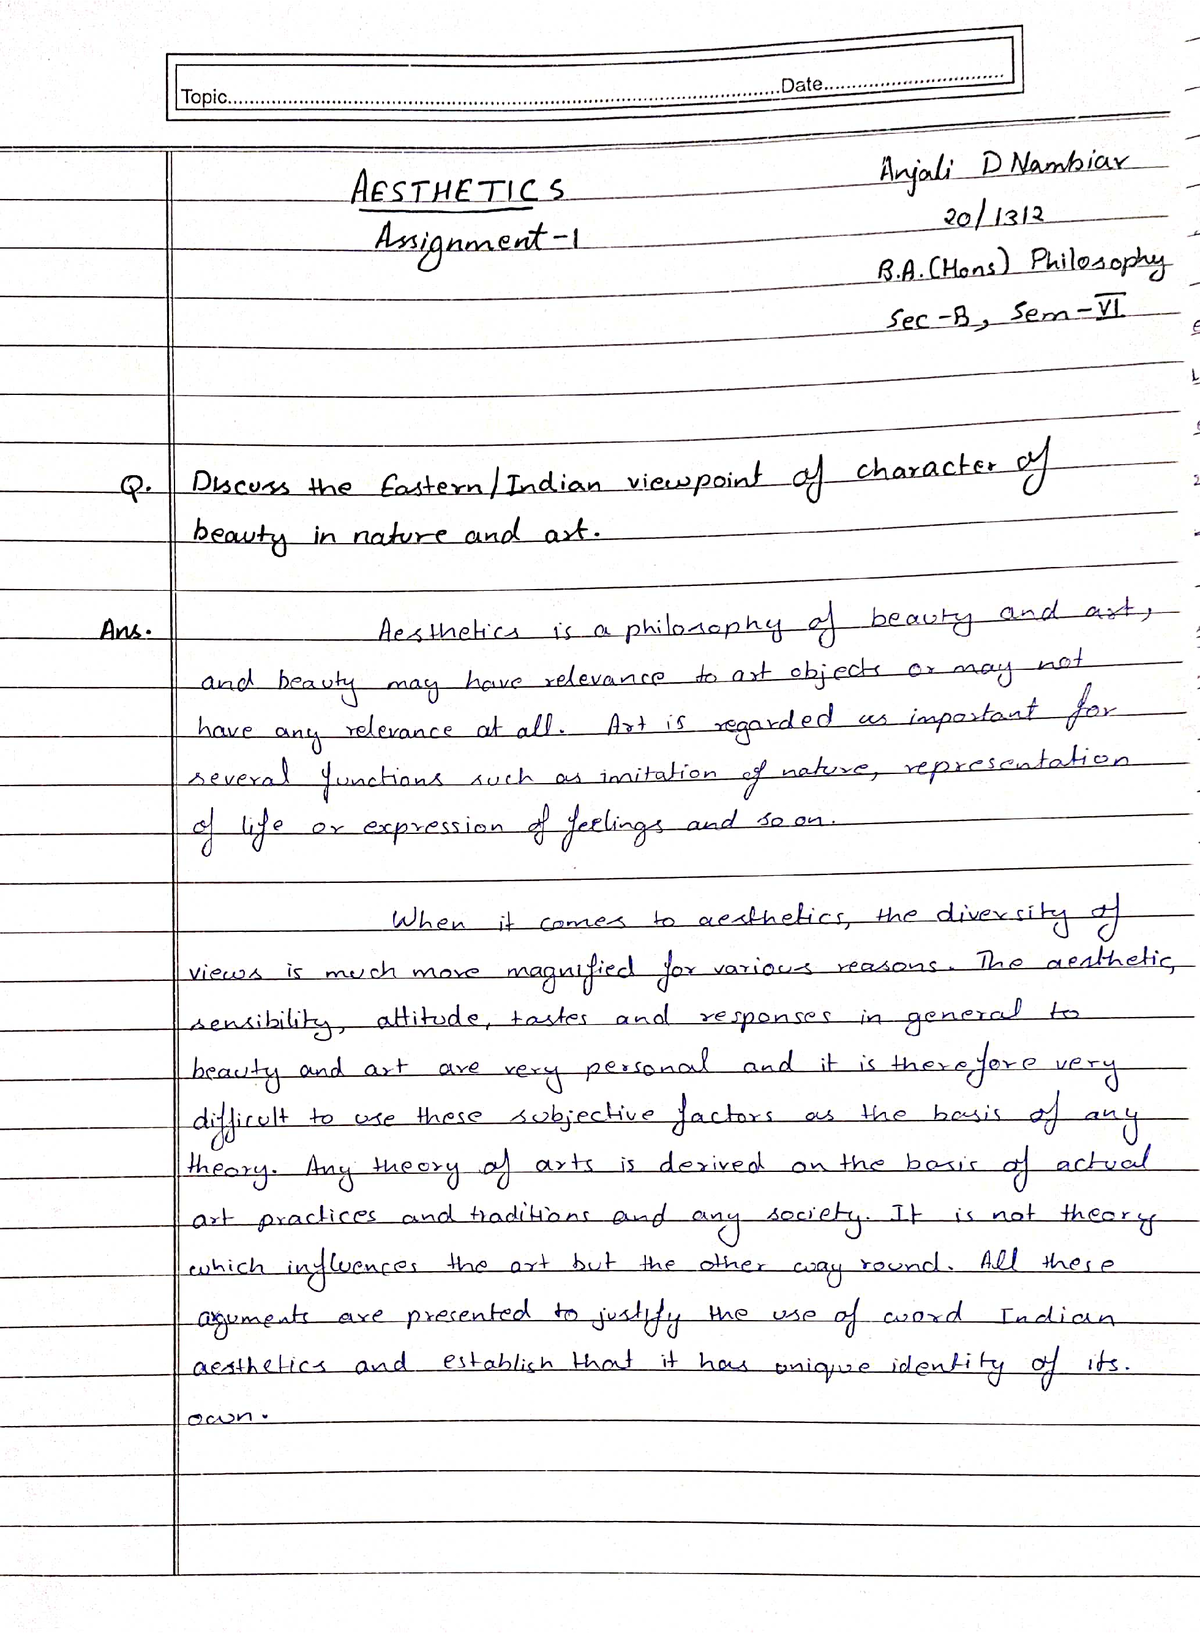 Topic..........Date..........
AESTHETICS
Assignment-1
Anjali D Nambiar
20/1312
B.A.(Hons) Philosophy
Sec-B, Sem-VI
Q. Discuss the Eastern/Indian viewpoint of character of
beauty in nature and art.
Ans. Aesthetics is a philosophy of beauty and art,
and beauty may have relevance to art objects or may not
have any relevance at all. Art is regarded as important for
several functions such as imitation of nature, representation
of life or expression of feelings and so on.
When it comes to aesthetics, the diversity of
views is much more magnified for various reasons. The aesthetic
sensibility, attitude, tastes and responses in general to
beauty and art are very personal and it is therefore very
difficult to use these subjective factors as the basis of any
theory. Any theory of arts is derived on the basis of actual
art practices and traditions and any society. It is not theory
which influences the art but the other way round. All these
arguments are presented to justify the use of word Indian
aesthetics and establish that it has unique identity of its.
own.